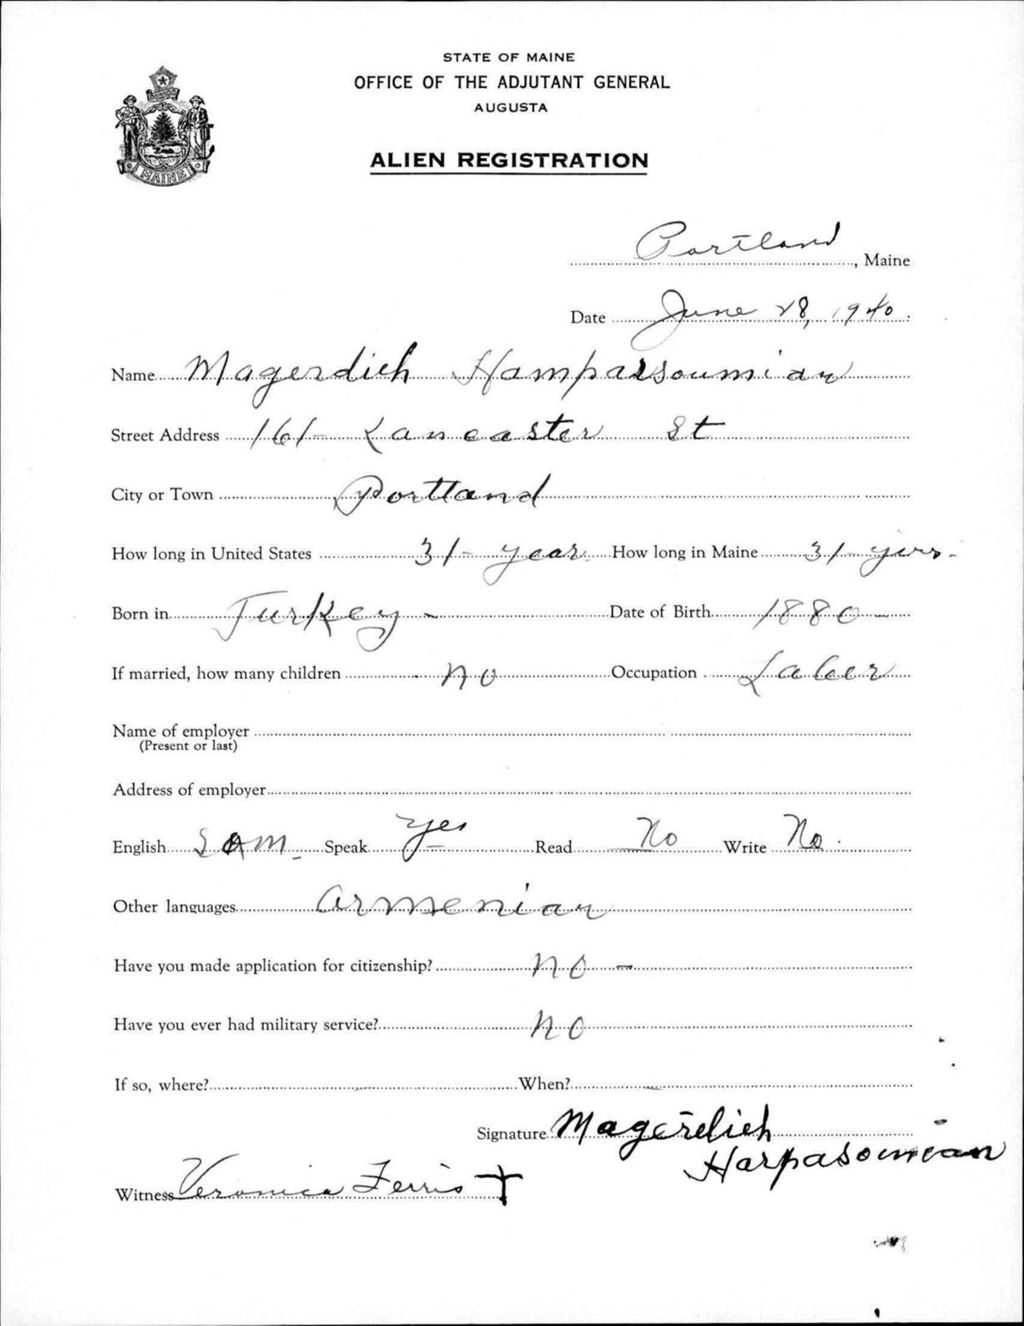 STATE OF MAINE
OFFICE OF THE ADJUTANT GENERAL
AUGUSTA
MAINE
ALIEN REGISTRATION
Portland, Maine
Date June 28, 1940
Name Magerdich Hamparsoumian
Street Address 161- Lancaster St
City or Town Portland
How long in United States 31- year How long in Maine 31- yurs-
Born in Turkey - Date of Birth 1880 -
If married, how many children no Occupation Laber
Name of employer
(Present or last)
Address of employer
English Speak yes Read No Write No
Other languages Armenian
Have you made application for citizenship? No -
Have you ever had military service? No
If so, where? When?
Signature Magerdich
Harpasoumian
Witness Veronica Ferris